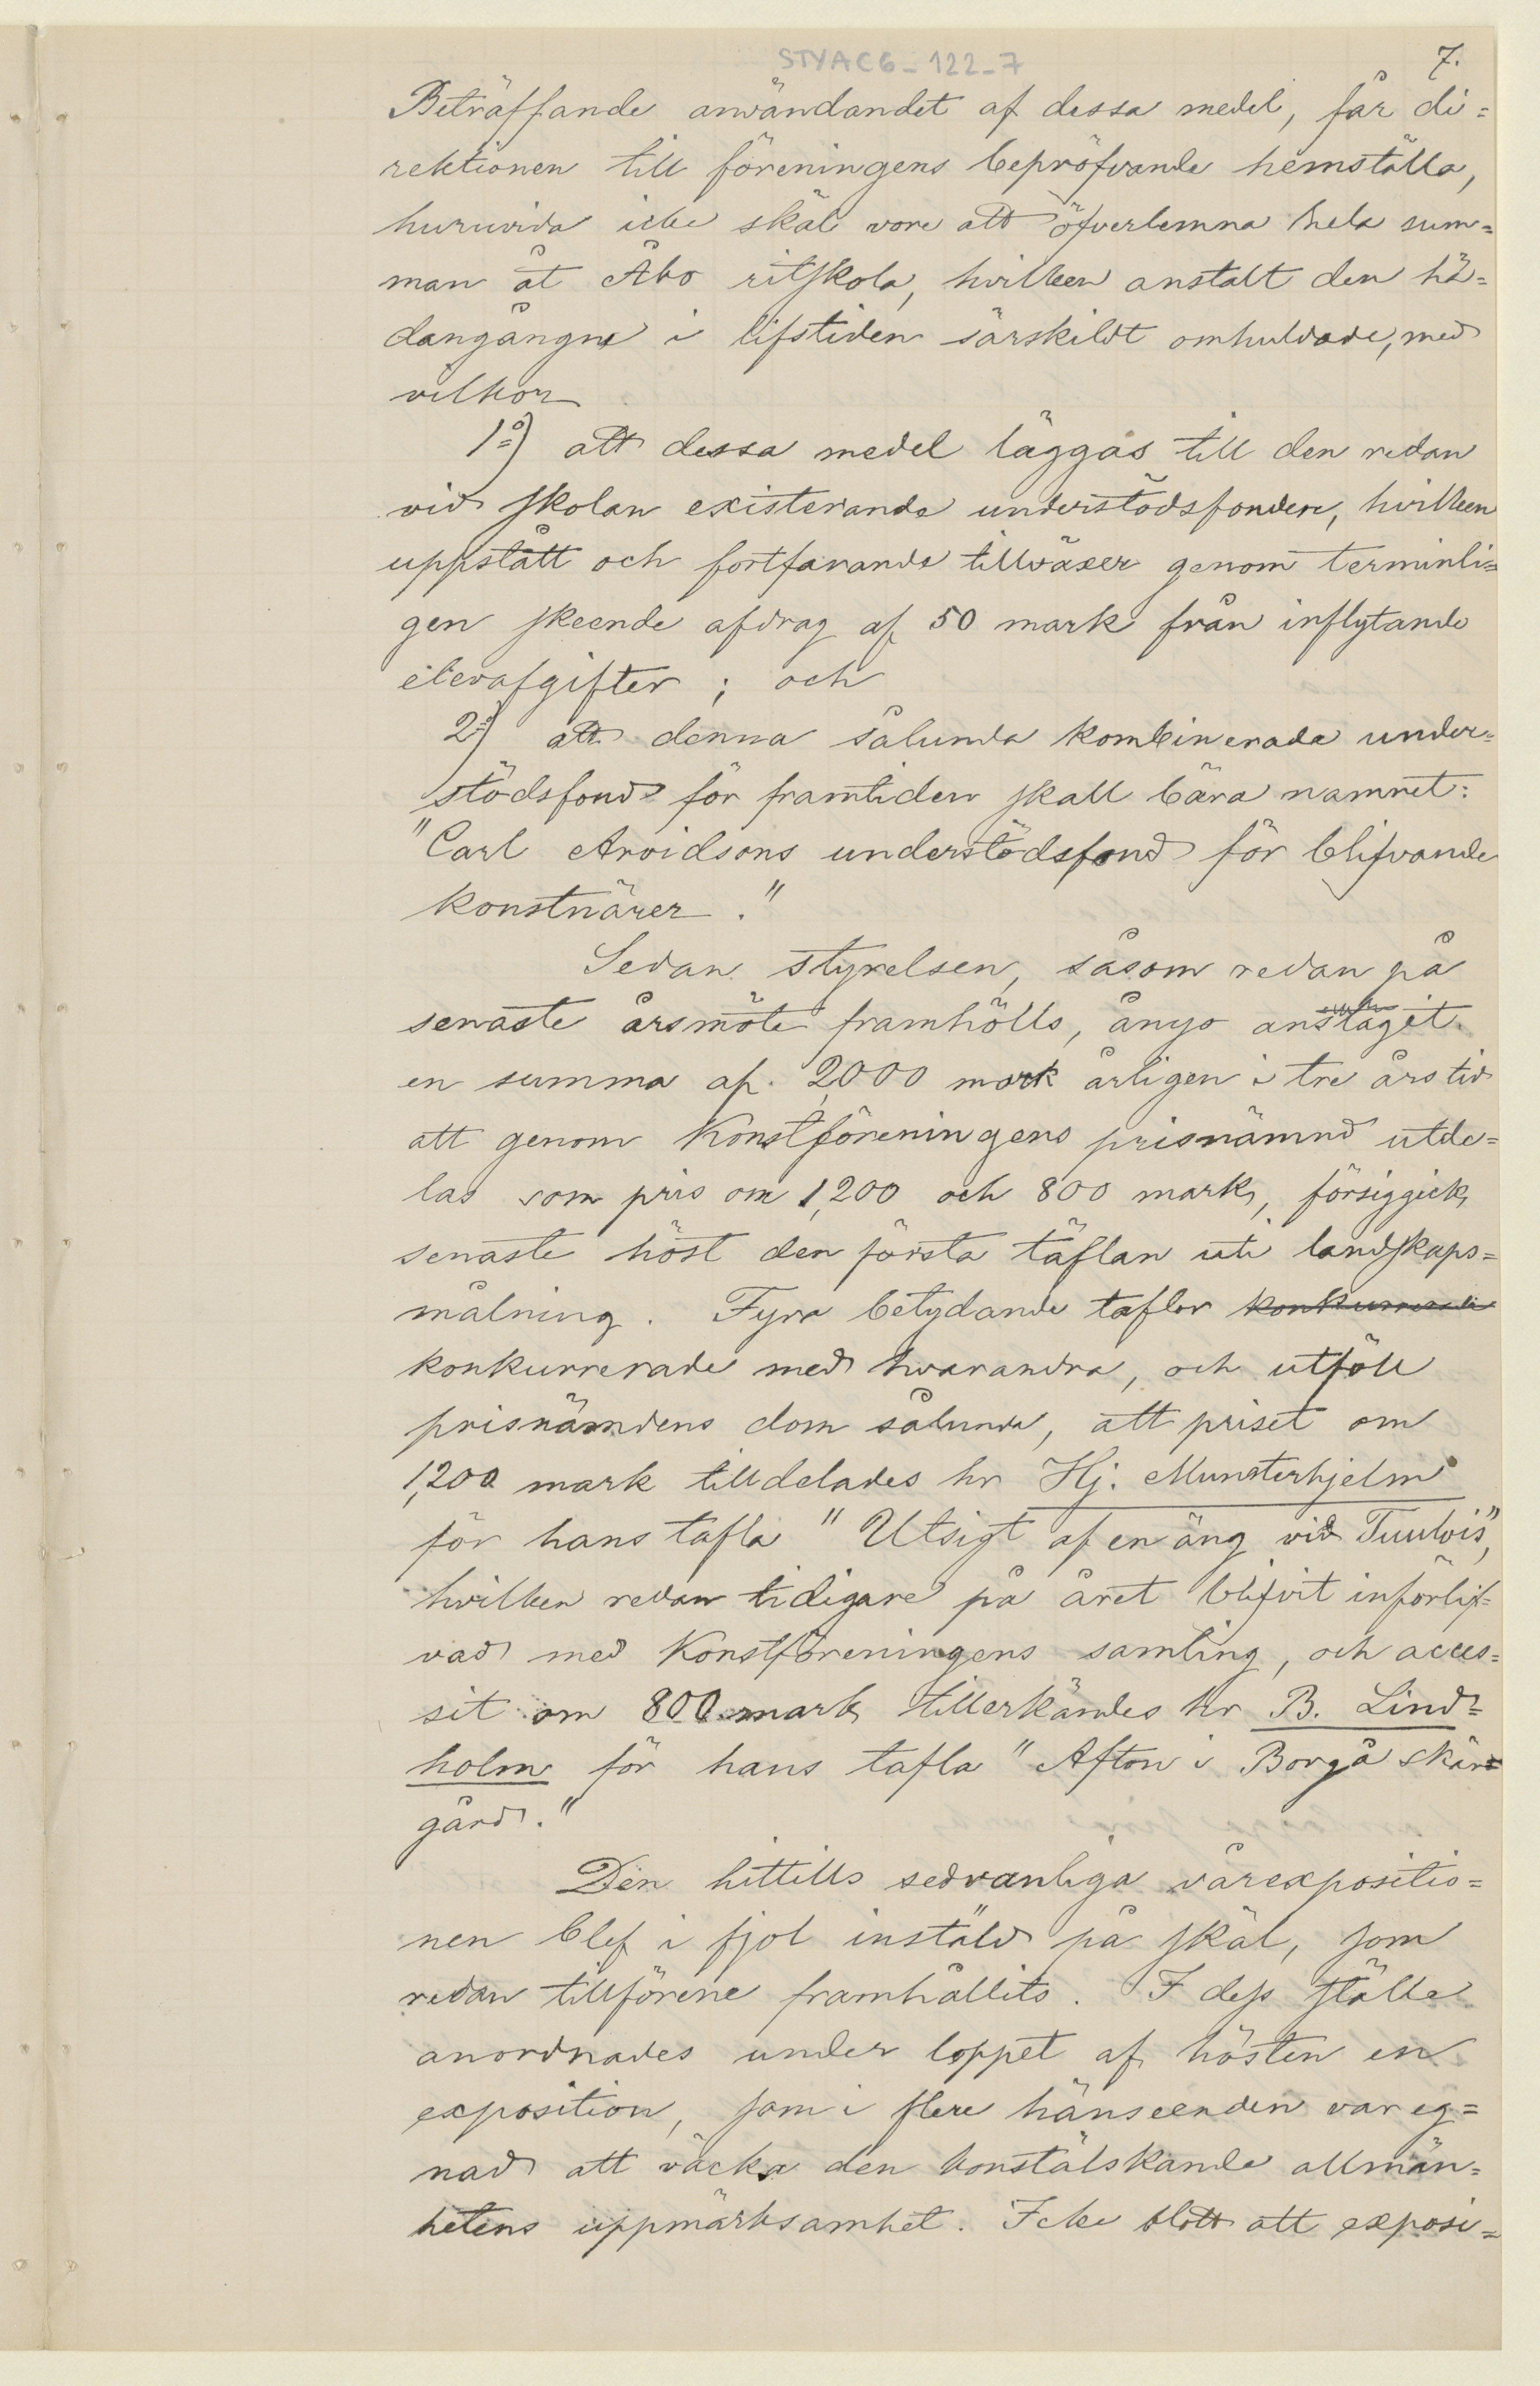 STYAC6_122_7
7.
Beträffande användandet af dessa medel, får di=
rektionen till föreningens bepröfvande hemställa,
huruvida icke skäl vore att öfverlemna hela sum=
man åt Åbo ritskola, hvilken anstalt den hä=
dangångne i lifstiden särskildt omhuldade, med
vilkor
1º) att dessa medel läggas till den redan
vid skolan existerande understödsfonden, hvilken
uppstått och fortfarande tillväxer genom terminli=
gen skeende afdrag af 50 mark från inflytande
elevafgifter; och
2º) att denna sålunda kombinerade under=
stödsfond för framtiden skall bära namnet:
"Carl Arvidsons understödsfond för blifvande
konstnärer."
Sedan styrelsen, såsom redan på
senaste årsmöte framhölls, ånyo anslagit
en summa af 2,000 mark årligen i tre års tid
att genom Konstföreningens prisnämnd utde=
las som pris om 1,200 och 800 mark, försiggick
senaste höst den första täflan uti landskaps=
målning. Fyra betydande taflor konkurrerade
konkurrerade med hvarandra, och utföll
prisnämdens dom sålunda, att priset om
1,200 mark tilldelades hr Hj. Munsterhjelm
för hans tafla "Utsigt af en äng vid Tuulois",
hvilken redan tidigare på året blifvit införlif=
vad med Konstföreningens samling, och acces=
sit om 800 mark tillerkändes hr B. Lind=
holm för hans tafla "Afton i Borgå skär=
gård."
Den hittills sedvanliga vårexpositio=
nen blef i fjol instäld på skäl, som
redan tillförene framhållits. I dess ställe
anordnades under loppet af hösten en
exposition, som i flere hänseenden var eg=
nad att väcka den konstälskande allmän=
hetens uppmärksamhet. Icke blott att exposi=